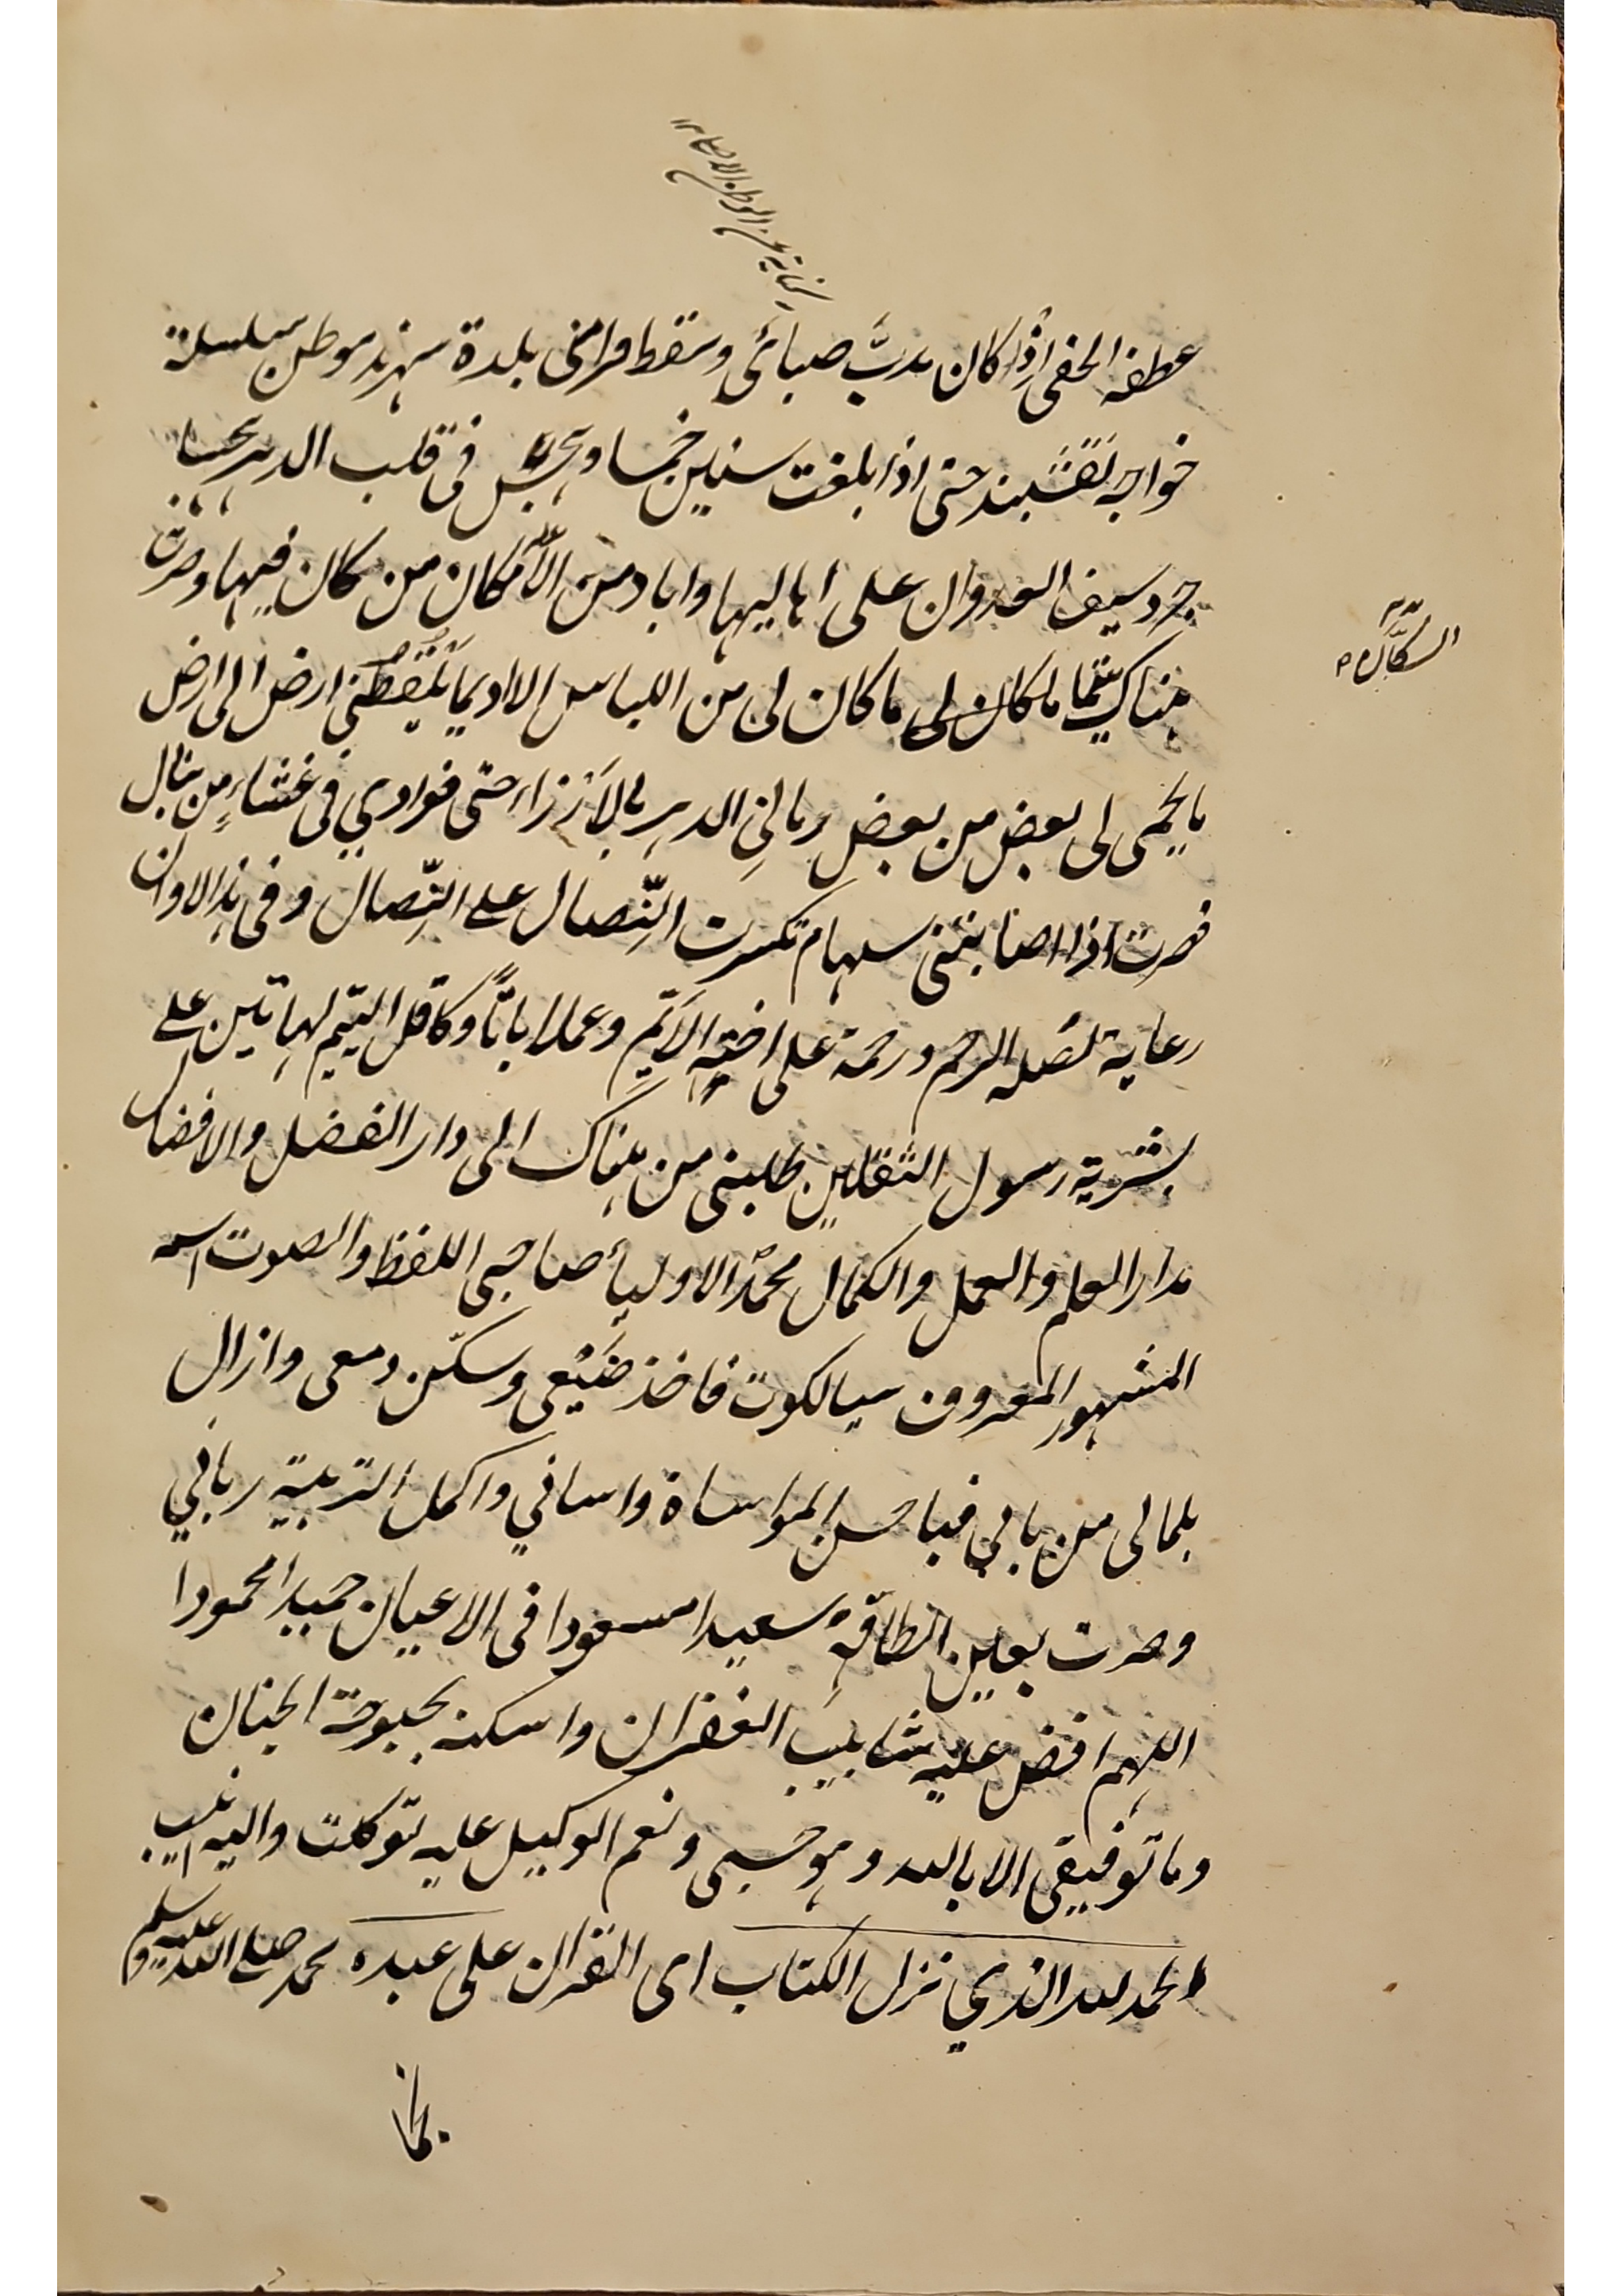 كناية عن الوطن الاصلي ١٢
عطفه الخفى اذ كان مدبَّ صبائى ومسقط راسى بلدة سهرند موطن سلسلة
خواجه نقشبند حتى اذا بلغت سنين خمسا فى قلب الدهر
جرد سيف العدوان على اهاليها واباد من الامكان من كان فيها وصرت
السكان
هناك يتيما ما كان لى ما كان لى من اللباس الا اديما ارض الى ارض
لى بعض من بعض رمانى الدهر بالارزاء حتى فوادي فى غشاء من نبال
فصرت اذا اصابتنى سهام تكسرت النصال على النصال وفى هذا الاوان
رعاية لصله الرحم ورحمة على اليتيم وعملا بانا وكافل اليتيم كهاتين على
رسول الثقلين طلبنى من هناك الى دار الفضل والافضال
مدار العلم والعمل والكمال الاوليا صاحبى اللفظ والصوت اسمه
المشهور المعروف سيالكوت فاخذ ضبعى وسكّن دمعى وازال
بلبالى من بالي فباحسن المواساة واساني واكمل التربية رباني
وصرت بعين الطافه سعيدا مسعودا فى الاعيان حميدا محمودا
اللهم افض عليه شابيب الغفران واسكنه بحبوحة الجنان
وما توفيقى الا بالله وهو حسبى ونعم الوكيل عليه توكلت واليه انيب
الحمد لله الذي نزل الكتاب اى القران على عبده محمد صلى الله عليه وسلم